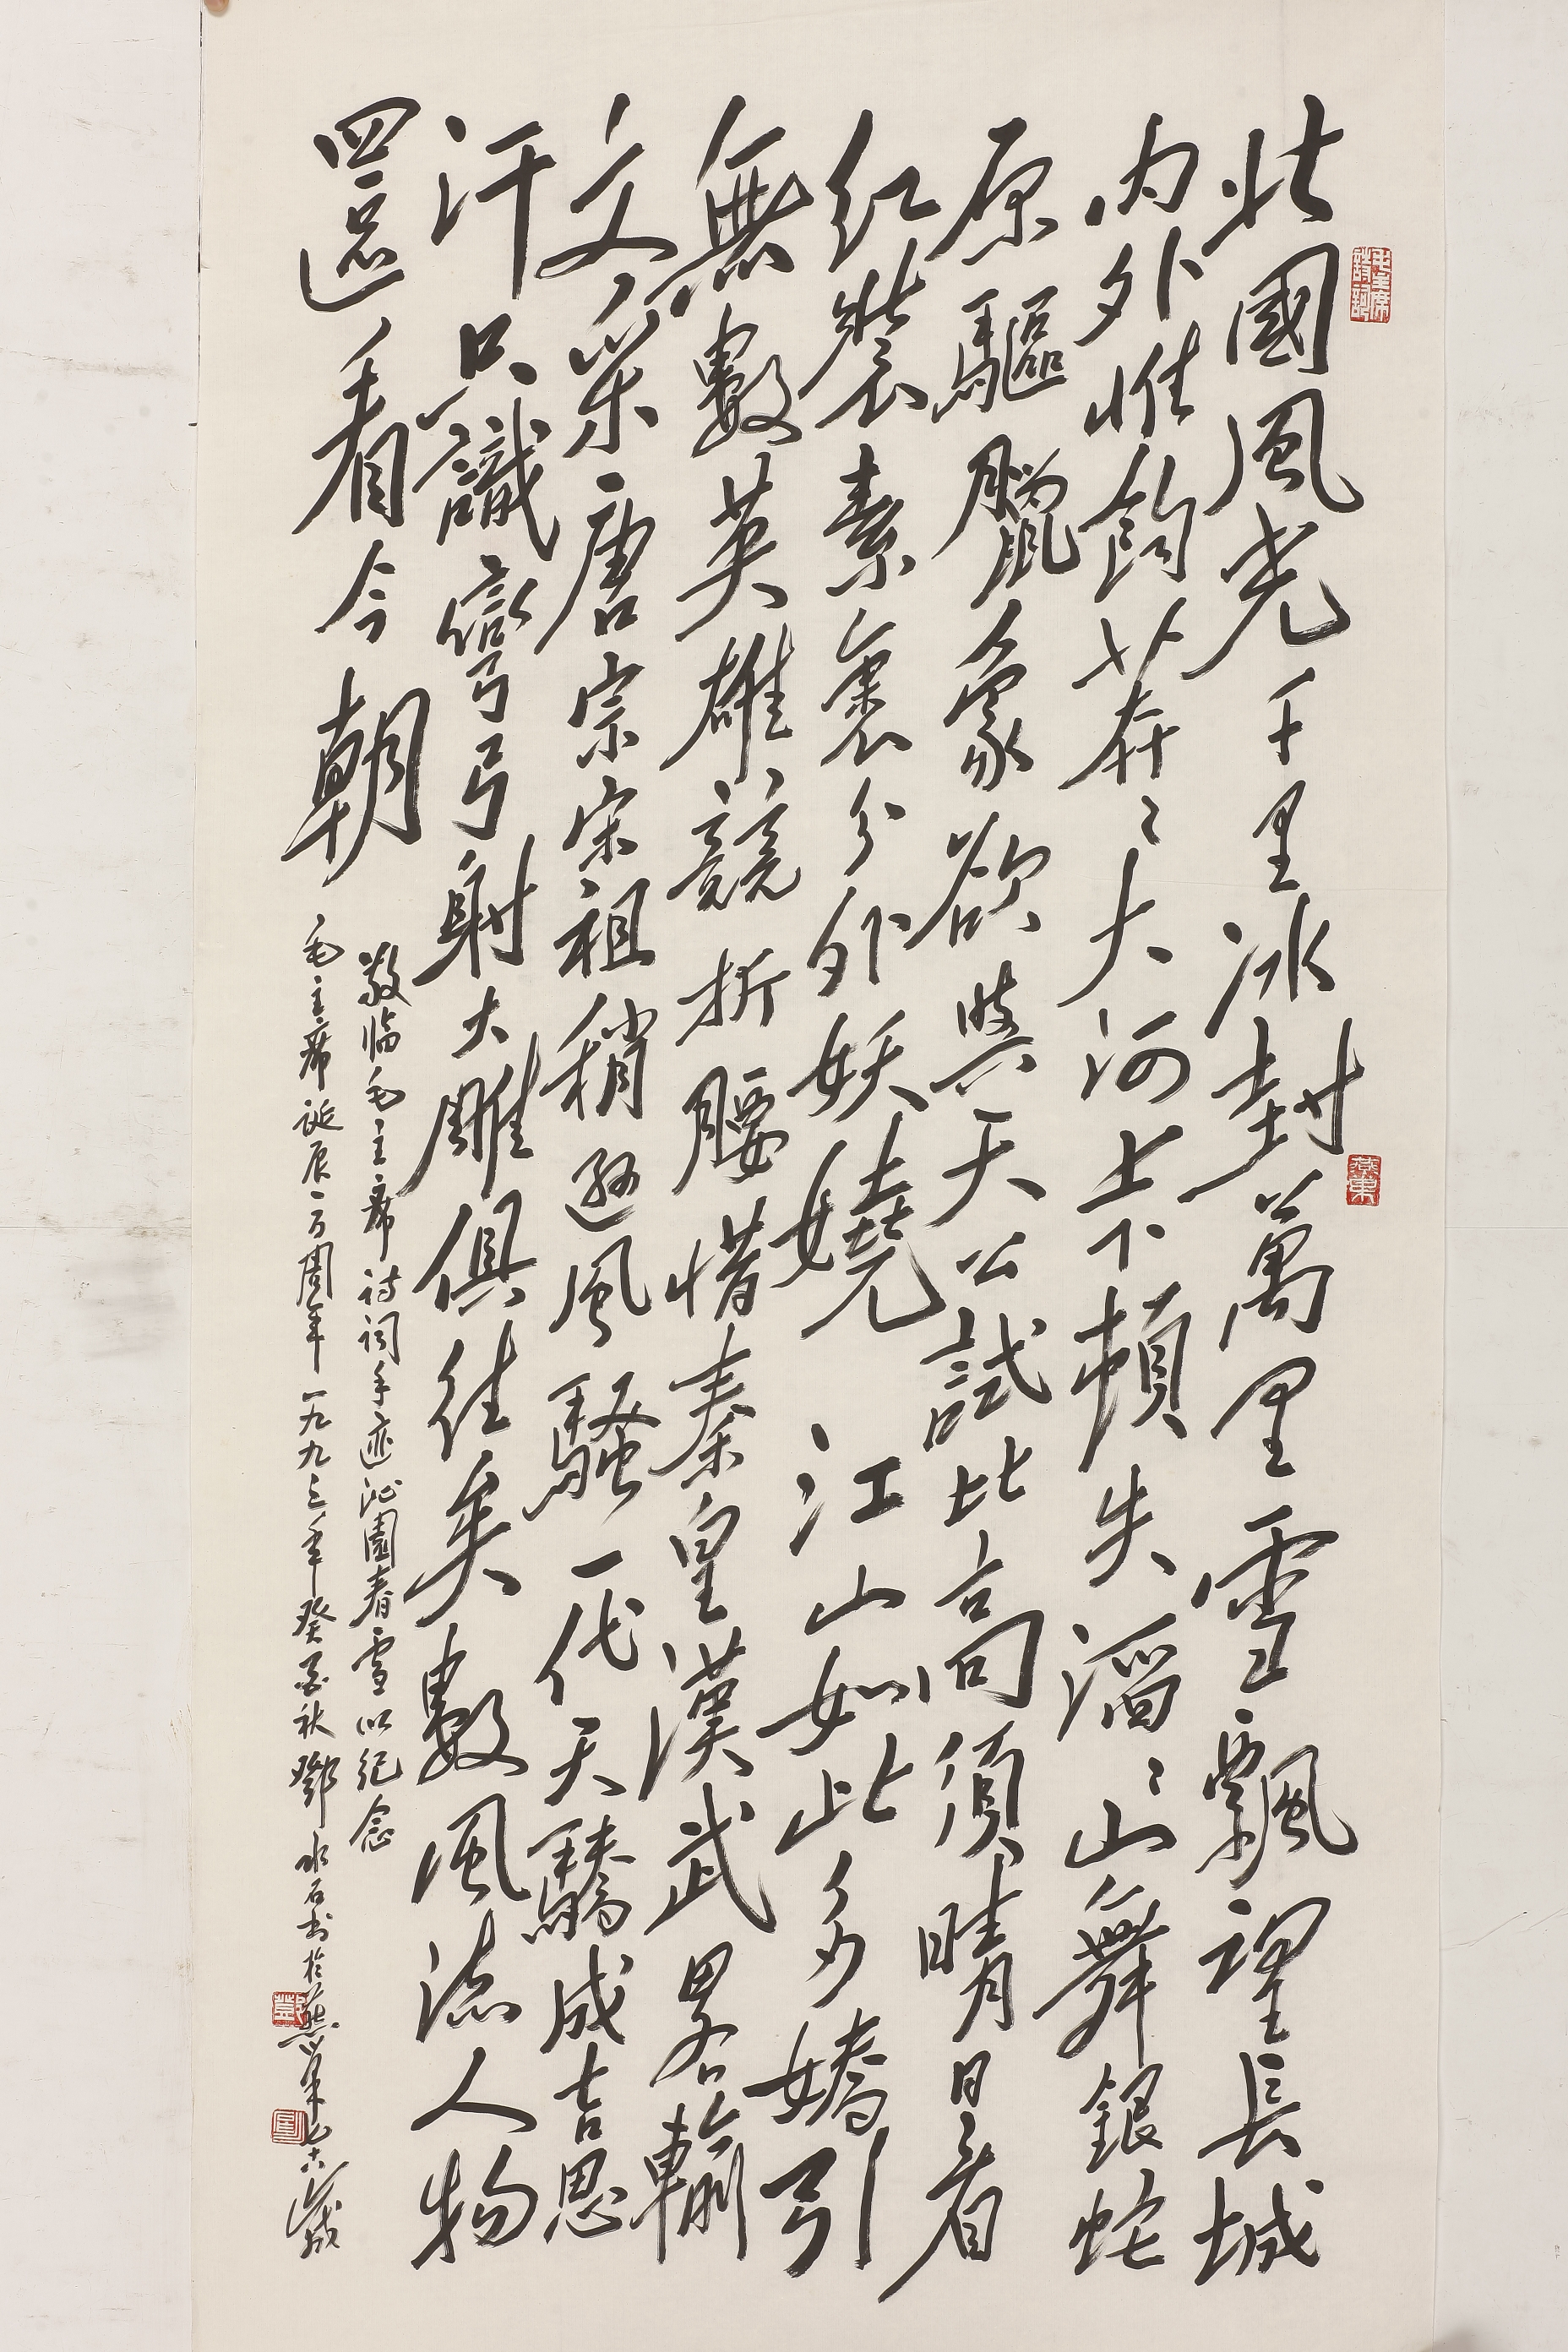 北國風光千里冰封萬里雪飄望長城
内外惟餘莽々大河上下頓失滔々山舞銀蛇
原驅臘象欲與天公試比高須晴日看
红裝素裹分外妖嬈江山如此多嬌引
無數英雄競折腰惜秦皇漢武畧輸
文采唐宗宋祖稍遜風騷一代天驕成吉思
汗只識彎弓射大雕俱往矣數風流人物
還看今朝
敬临毛主席诗词手迹沁園春雪以纪念
毛主席诞辰一百周年一九九三年癸酉秋鄧水石书於燕東七十六歲
毛主席詩詞
燕東